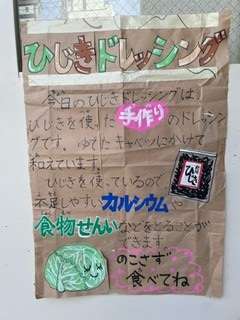 ひじきドレッシング
今日のひじきドレッシングは、
ひじきを使った手作りのドレッシン
グです。ゆでたキャベツにかけて
和えています。
ひじきを使っているので
不足しやすいカルシウムや
食物せんいなどをとることが
できます。
のこさず
食べてね
ひじき